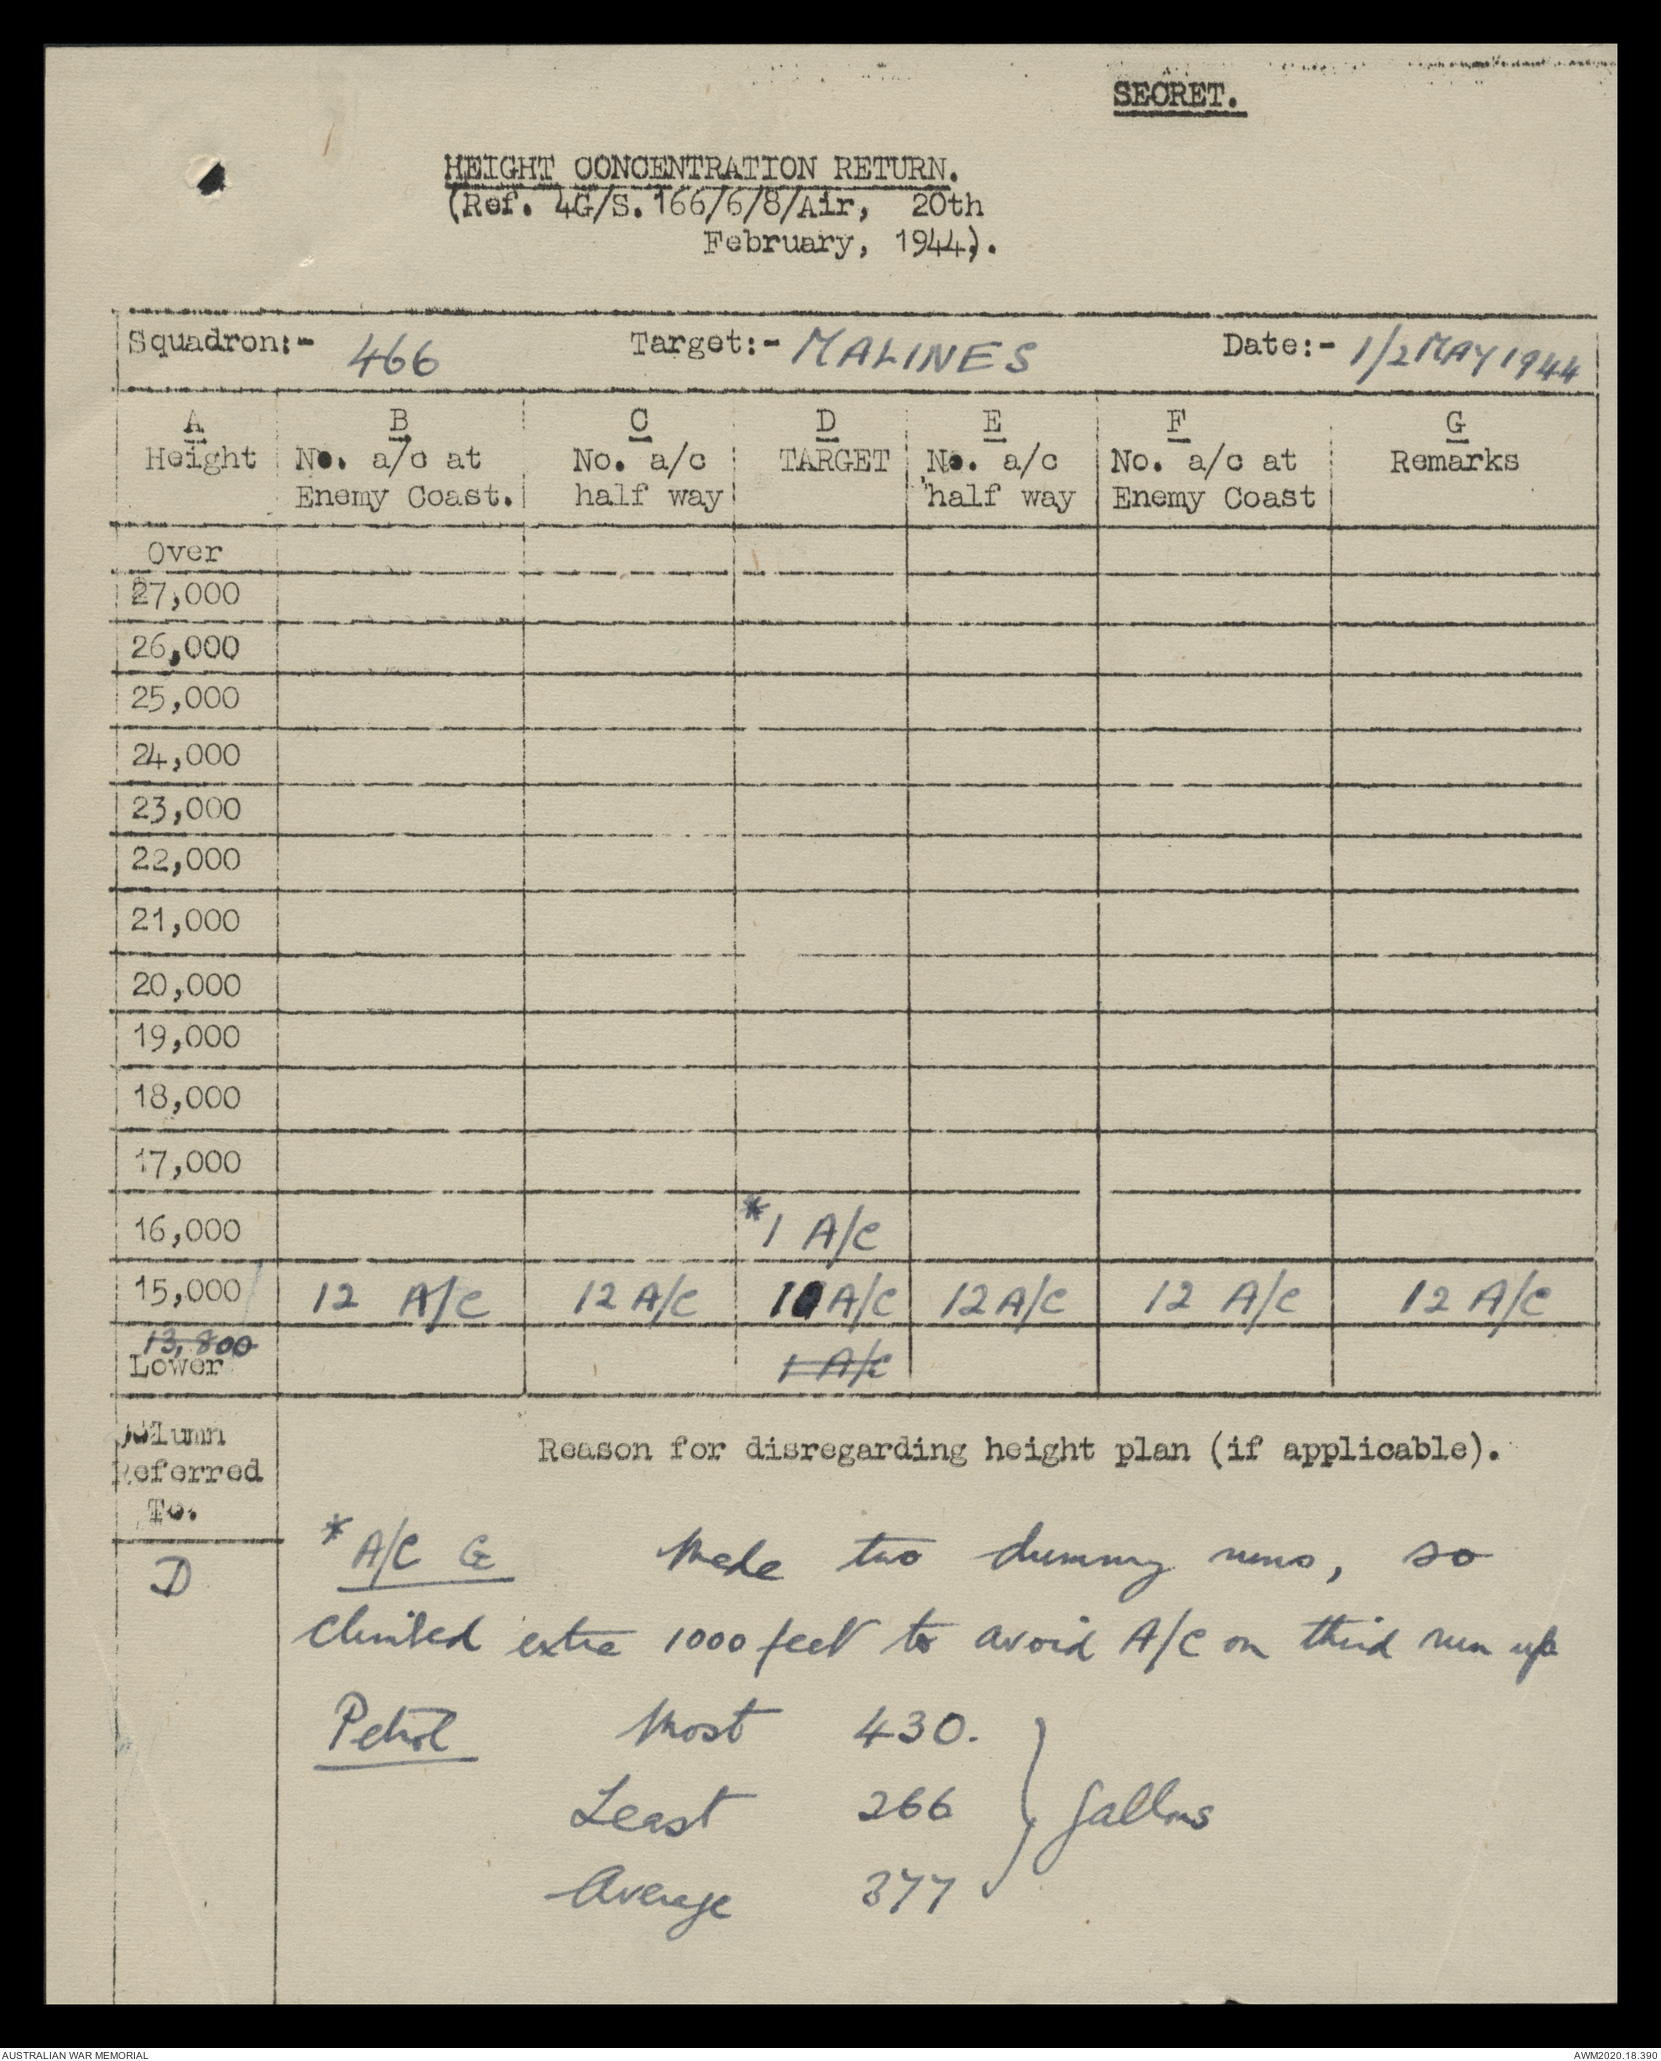 SECRET.
HEIGHT CONCENTRATION RETURN.
(Ref. 4G/S.166/6/8/Air, 20th
February, 1944).
Squadron:- 466 Target:- MALINES Date:- 1/2 MAY 1944
A B C D E F G
Height No. a/c at No. a/c TARGET No. a/c No. a/c at Remarks
Enemy Coast. half way half way Enemy Coast
Over
27,000
26,000
25,000
24,000
23,000
22,000
21,000
20,000
19,000
18,000
17,000
16,000 * 1 A/C
15,000 12 A/C 12 A/C A/C 12 A/C 12 A/C 12 A/C
13,800
Lower 1 A/C
Column
Referred
To.
Reason for disregarding height plan (if applicable).
D * A/C G Made two dummy runs, so
climbed extra 1000 feet to avoid A/C on third run up
Petrol Most 430.
Least 266 } gallons
Average 377
AUSTRALIAN WAR MEMORIAL AWM2020.18.390